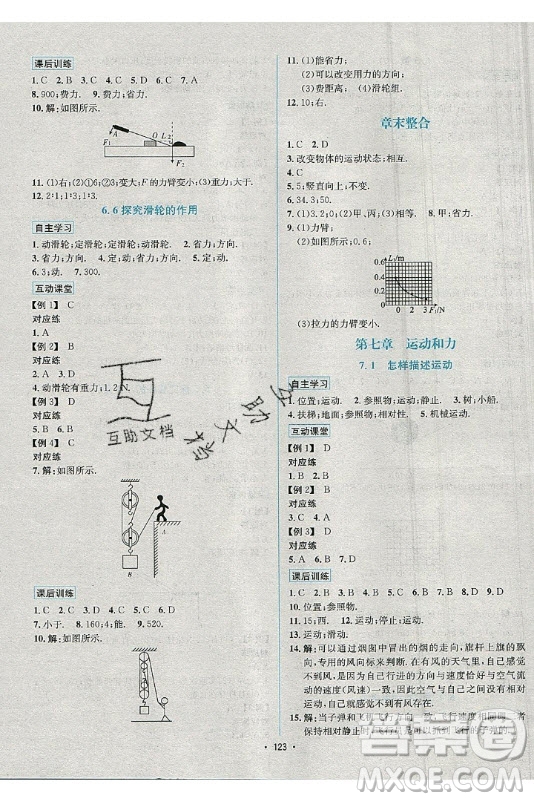 课后训练
1. C  2. B  3. A  4. C  5. D  6. C  7. A
8. 900;费力。  9. 费力;省力。
10. 解:如图所示。
F₁ A O L₂ F₂
11. (1)右;(2)①6;②3;变大;F的力臂变小;(3)重力;大于。
12. 2∶1;1∶3;1∶3。
6.6 探究滑轮的作用
自主学习
1. 动滑轮;定滑轮;定滑轮;动滑轮。  2. 方向;力。
3. 省力;方向。  4. 定;动;省力。  5. 定;动;方向。
6. 3;动。  7. 300。
互动课堂
【例1】 C
对应练
1. A
【例2】 B
对应练
2. D  3. A
【例3】 D
对应练
4. 动滑轮有重力;1.2N。
5. C  6. C
【例4】 D
对应练
7. 解:如图所示。
A
B
课后训练
1. C  2. C  3. D  4. C  5. D  6. D
7. 小于。  8. 160;能。  9. 520。
10. 解:如图所示。
11. (1)能省力;
(2)可以改变用力的方向;
(3)费距离;(4)滑轮组。
12. 10;右。
章末整合
1. C  2. D
3. 改变物体的运动状态;相互。
4. C
5. 5;竖直向上;不变。
6. 34.3;50。
7. (1)3.0;左;(2)甲、丙;(3)甲、乙。
8. D
9. (1)力臂;
(2)如图所示;0.6;
L₁/m
0.6
0.4
0.2
0 1 2 3 F₁/N
(3)拉力的力臂变小。
第七章 运动和力
7.1 怎样描述运动
自主学习
1. 位置;运动。  2. 参照物;运动。  3. 树;小船。
4. 扶梯;地面;相对性。  5. 机械运动。
互动课堂
【例1】 D
对应练
1. B  2. B
【例2】 D
对应练
3. C  4. A
【例3】 D
对应练
5. A  6. B  7. D
课后训练
1. C  2. C  3. C  4. C  5. A  6. D  7. C  8. B  9. D
10. 位置;参照物。
11. 15;西。  12. 运动;停止;运动。
13. 运动;滑动。
14. 解:可以通过烟囱中冒出的烟的走向,旗杆上旗的飘
向,专用的风向标来判断。在有风的天气里,我们感
觉不到风,是因为自己行进的方向与空气流动的方
向以及速度(风速)一样,因此空气与自己之间没有
发生相对运动,所以自己感觉没有风存在。
15. 解:当子弹和飞机飞行方向、飞行速度近似一样或者
保持相对静止时,飞行员可以抓到飞行的子弹的。
· 123 ·
互助文档
答案圈
MXQE.COM